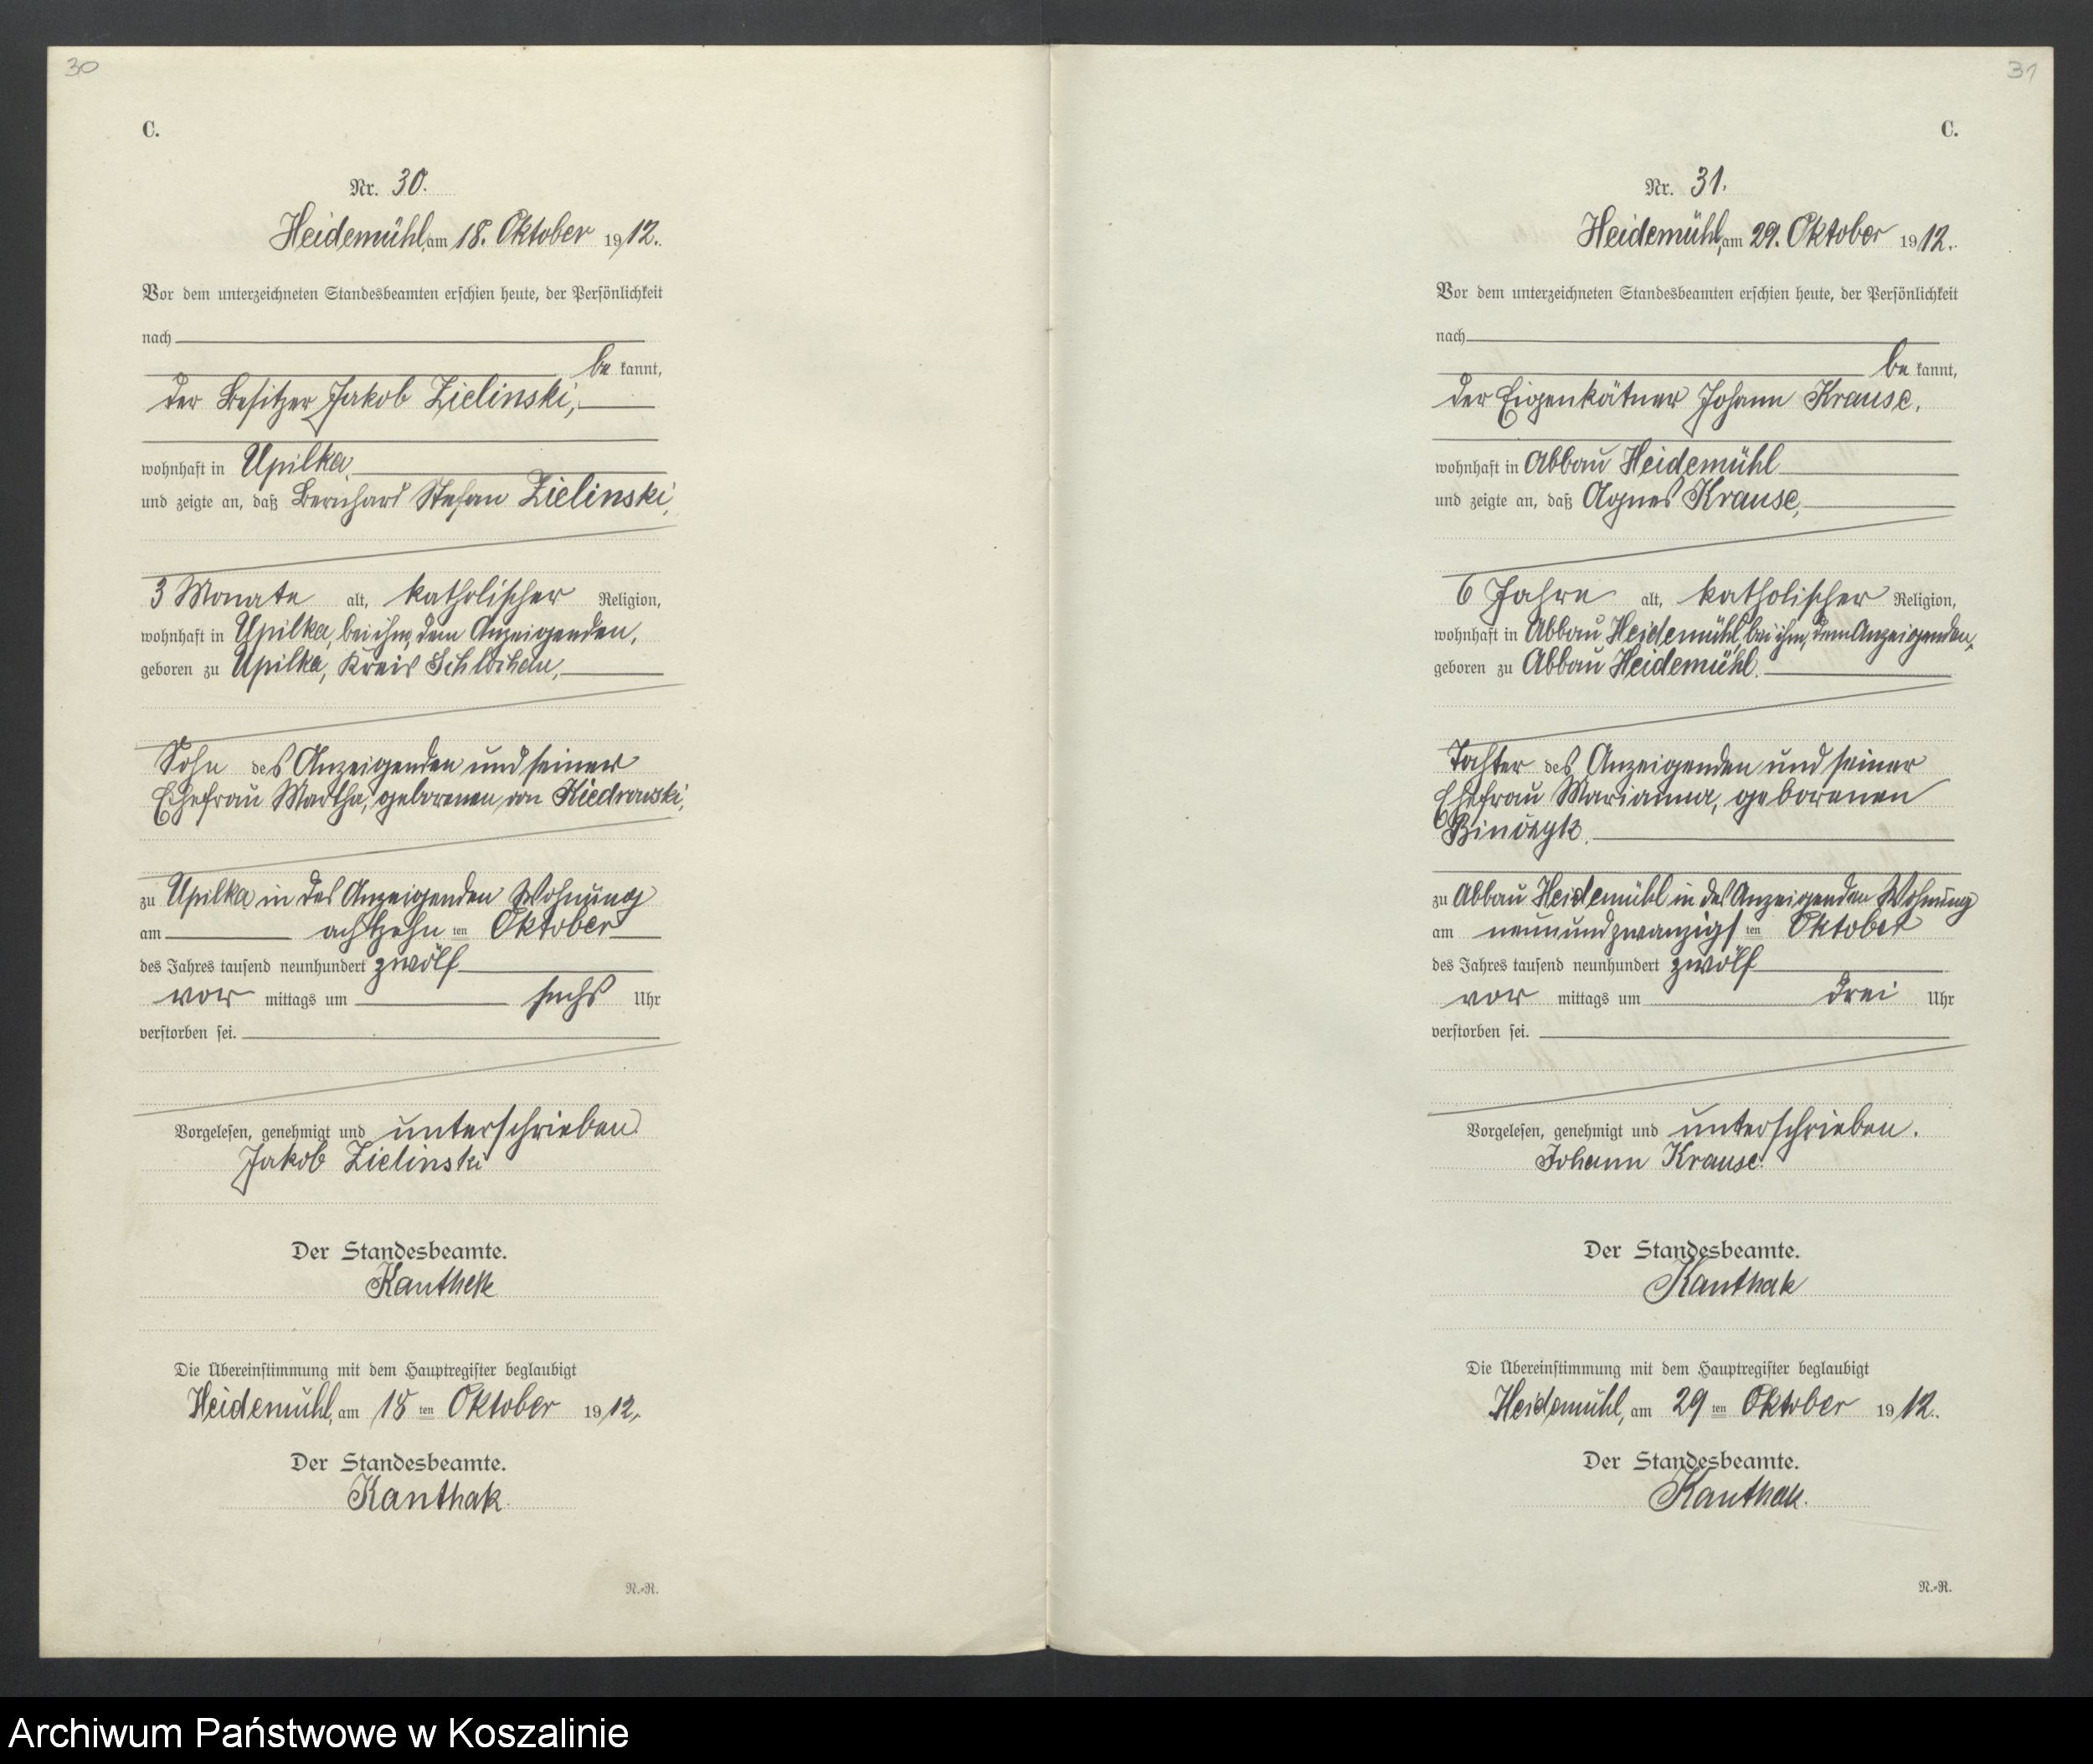 30
C.
Nr. 30.
Heidemühl, am 18. Oktober 1912.
Vor dem unterzeichneten Standesbeamten erschien heute, der Persönlichkeit
nach
be kannt,
der Besitzer Jakob Zielinski,
wohnhaft in Upilka
und zeigte an, daß Bernhard Stefan Zielinski,
3 Monate alt, katholischer Religion,
wohnhaft in Upilka, bei ihm, dem Anzeigenden,
geboren zu Upilka, Kreis Schlochau,
Sohn des Anzeigenden und seiner
Ehefrau Martha, geborenen von Kiedrowski,
zu Upilka in des Anzeigenden Wohnung
am achtzehn ten Oktober
des Jahres tausend neunhundert zwölf
vor mittags um sechs Uhr
verstorben sei.
Vorgelesen, genehmigt und unterschrieben.
Jakob Zielinski
Der Standesbeamte.
Kanthak
Die Übereinstimmung mit dem Hauptregister beglaubigt
Heidemühl, am 18 ten Oktober 1912.
Der Standesbeamte.
Kanthak.
N.-R.
31
C.
Nr. 31.
Heidemühl, am 29. Oktober 1912.
Vor dem unterzeichneten Standesbeamten erschien heute, der Persönlichkeit
nach
be kannt,
der Eigenkätner Johann Krause,
wohnhaft in Abbau Heidemühl
und zeigte an, daß Agnes Krause,
6 Jahre alt, katholischer Religion,
wohnhaft in Abbau Heidemühl, bei ihm, dem Anzeigenden,
geboren zu Abbau Heidemühl.
Tochter des Anzeigenden und seiner
Ehefrau Marianna, geborenen
zu Abbau Heidemühl in des Anzeigenden Wohnung
am neunundzwanzigs ten Oktober
des Jahres tausend neunhundert zwölf
vor mittags um drei Uhr
verstorben sei.
Vorgelesen, genehmigt und unterschrieben.
Johann Krause.
Der Standesbeamte.
Kanthak
Die Übereinstimmung mit dem Hauptregister beglaubigt
Heidemühl, am 29 ten Oktober 1912.
Der Standesbeamte.
Kanthak.
N.-R.
Archiwum Państwowe w Koszalinie